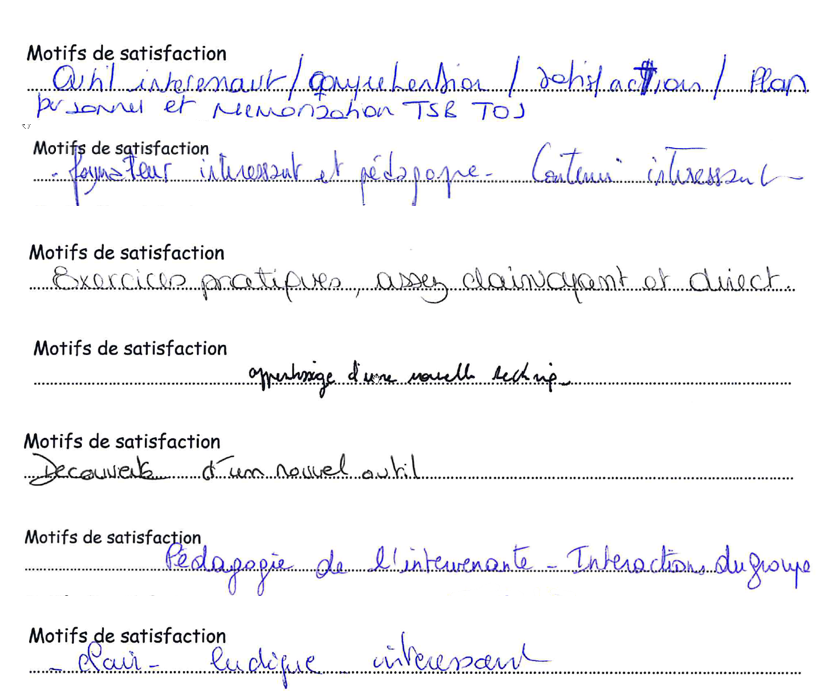 Motifs de satisfaction
Outil interessant / compréhension / satisfaction / Plan
personnel et memorisation TSB TOJ
Motifs de satisfaction
- formateur intéressant et pédagogue - Contenu intéressant
Motifs de satisfaction
Exercices pratiques, assez clairvoyant et direct.
Motifs de satisfaction
apprentissage d'une nouvelle technique
Motifs de satisfaction
Decouverte d'un nouvel outil
Motifs de satisfaction
Pédagogie de l'intervenante - Interactions du groupe
Motifs de satisfaction
- Clair - ludique interessant